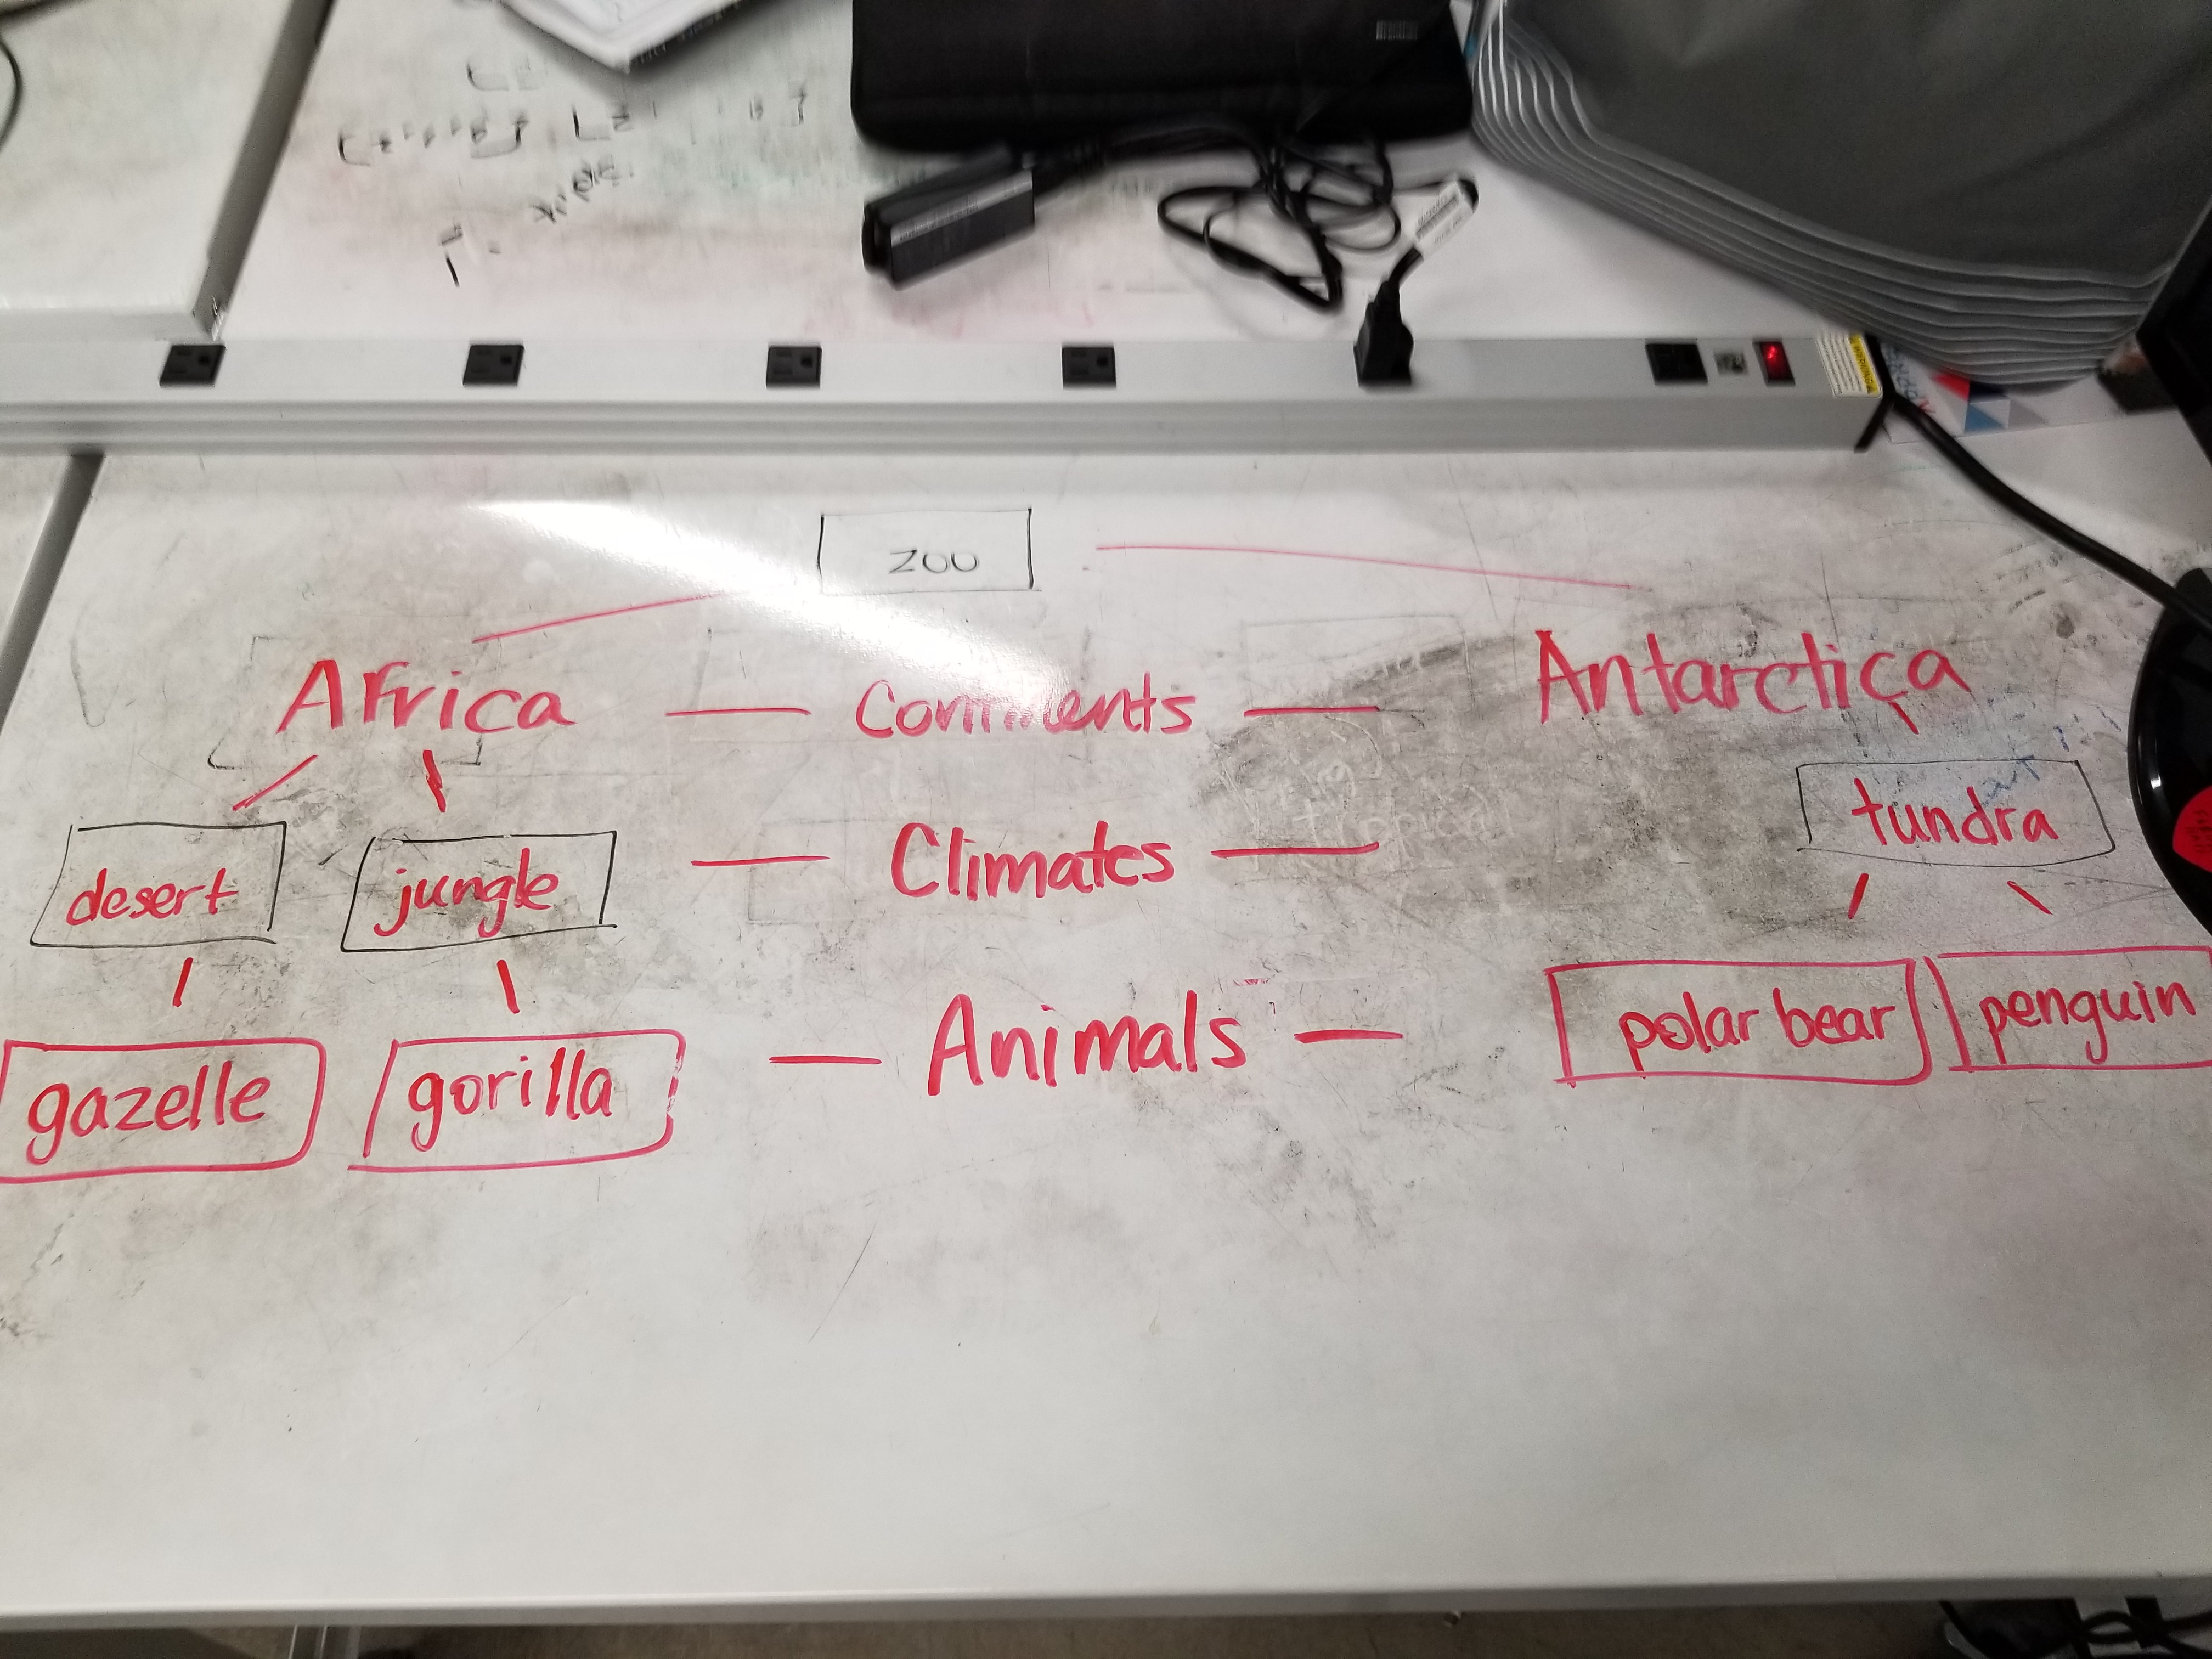 zoo
Africa — Continents — Antarctica
desert jungle — Climates — tundra
gazelle gorilla — Animals — polar bear penguin